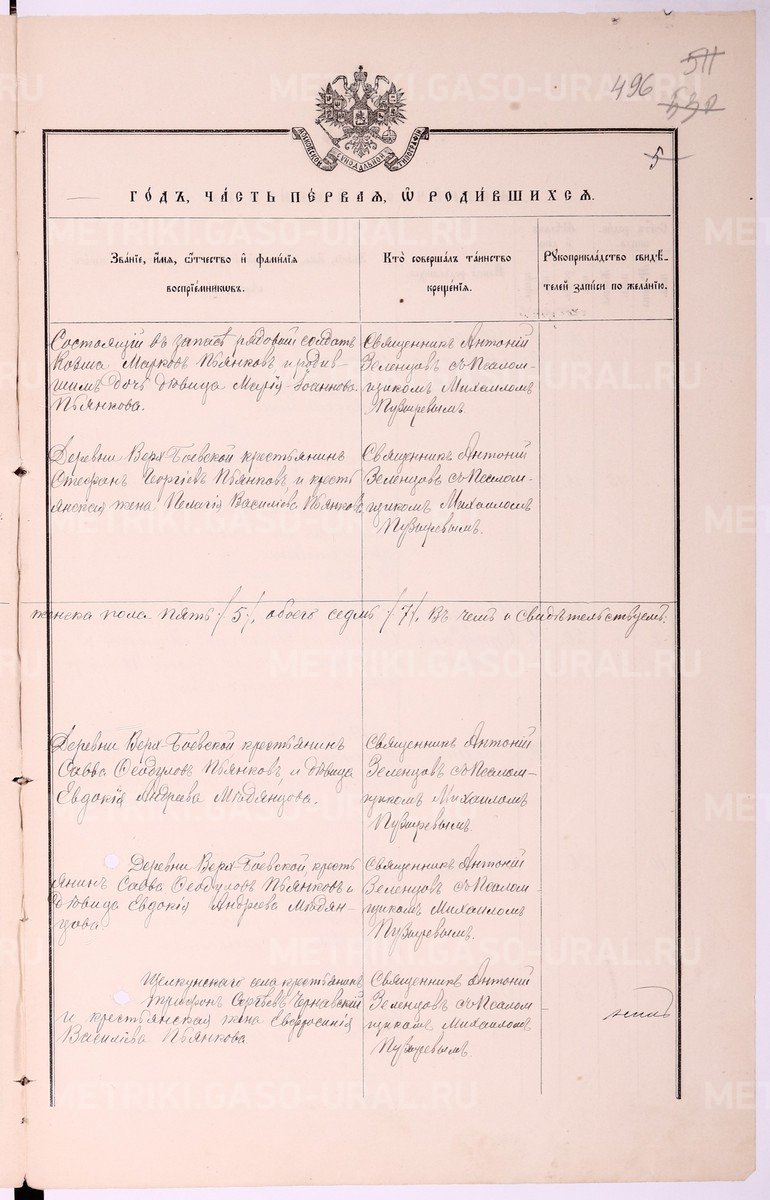 511
496 530
5
МОСКОВСКОЙ СѴНОДАЛЬНОЙ ТИПОГРАФІИ
ГО́ДЪ, ЧА́СТЬ ПЕ́РВАЯ, Ѿ РОДИ́ВШИХСЯ.
Зва́нїе, и҆́мя, ѻ҆́тчество и҆ фами́лїя
воспрїе́мниковъ.
Кто̀ соверша́лъ та́инство
креще́нїя.
Рꙋкоприкла́дство свидѣ́-
телей за́писи по жела́нїю.
Состоящій въ запасѣ рядовой солдатъ
Козма Марковъ Пьянковъ и родив-
шимъ дочь дѣвица Марія Іоаннова
Пьянкова.
Священникъ Антоній
Зеленцовъ съ Псалом-
щикомъ Михаиломъ
Пузыревымъ.
Деревни Верх-Боевской крестьянинъ
Стефанъ Георгіевъ Пьянковъ и кресть
янская жена Пелагія Василіева Пьянкова
Священникъ Антоній
Зеленцовъ съ Псалом-
щикомъ Михаиломъ
Пузыревымъ.
женска пола пять /5/, обоего седмь /7/. Въ чемъ и свидѣтельствуемъ:
Деревни Верх-Боевской крестьянинъ
Савва Ѳеодуловъ Пьянковъ и дѣвица
Евдокія Андреева Мѣдянцова.
Священникъ Антоній
Зеленцовъ съ Псалом-
щикомъ Михаиломъ
Пузыревымъ.
Деревни Верх-Боевской кресть
янинъ Савва Ѳеодуловъ Пьянковъ и
дѣвица Евдокія Андреева Мѣдян-
цова
Священникъ Антоній
Зеленцовъ съ Псалом-
щикомъ Михаиломъ
Пузыревымъ.
Щелкунскаго села крестьянинъ
Трифонъ Сергѣевъ Чернавскій
и крестьянская жена Евфросинія
Василіева Пьянкова
Священникъ Антоній
Зеленцовъ съ Псалом
щикомъ Михаиломъ
Пузыревымъ.
METRIKI.GASO-URAL.RU